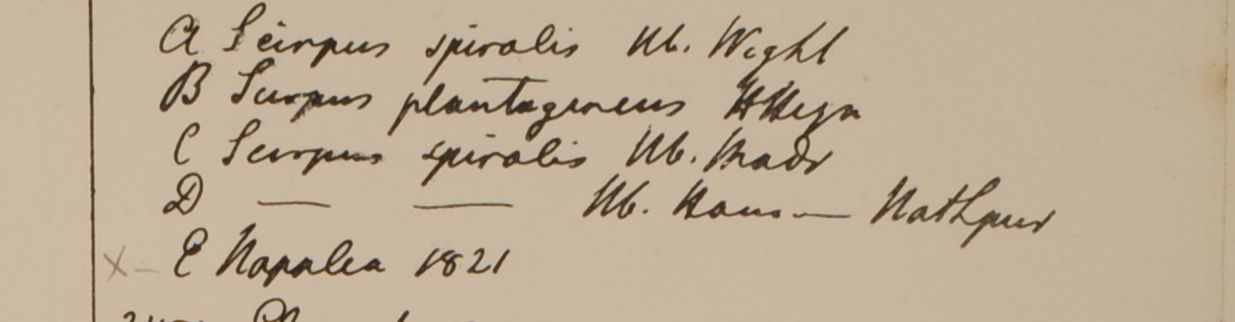 A Scirpus spiralis Hb. Wight
B Scirpus plantagineus HHeyn
C Scirpus spiralis Hb. Madr
D — — Hb. Ham — Nathpur
X - E Napalea 1821